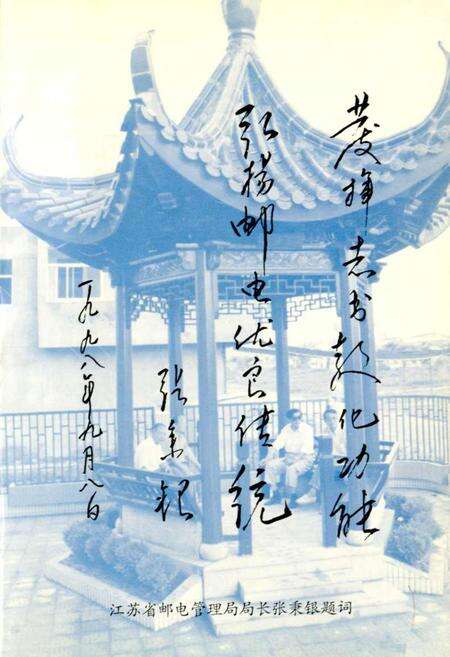 发挥志书教化功能
弘扬邮电优良传统
张秉银
一九九八年九月八日
江苏省邮电管理局局长张秉银题词